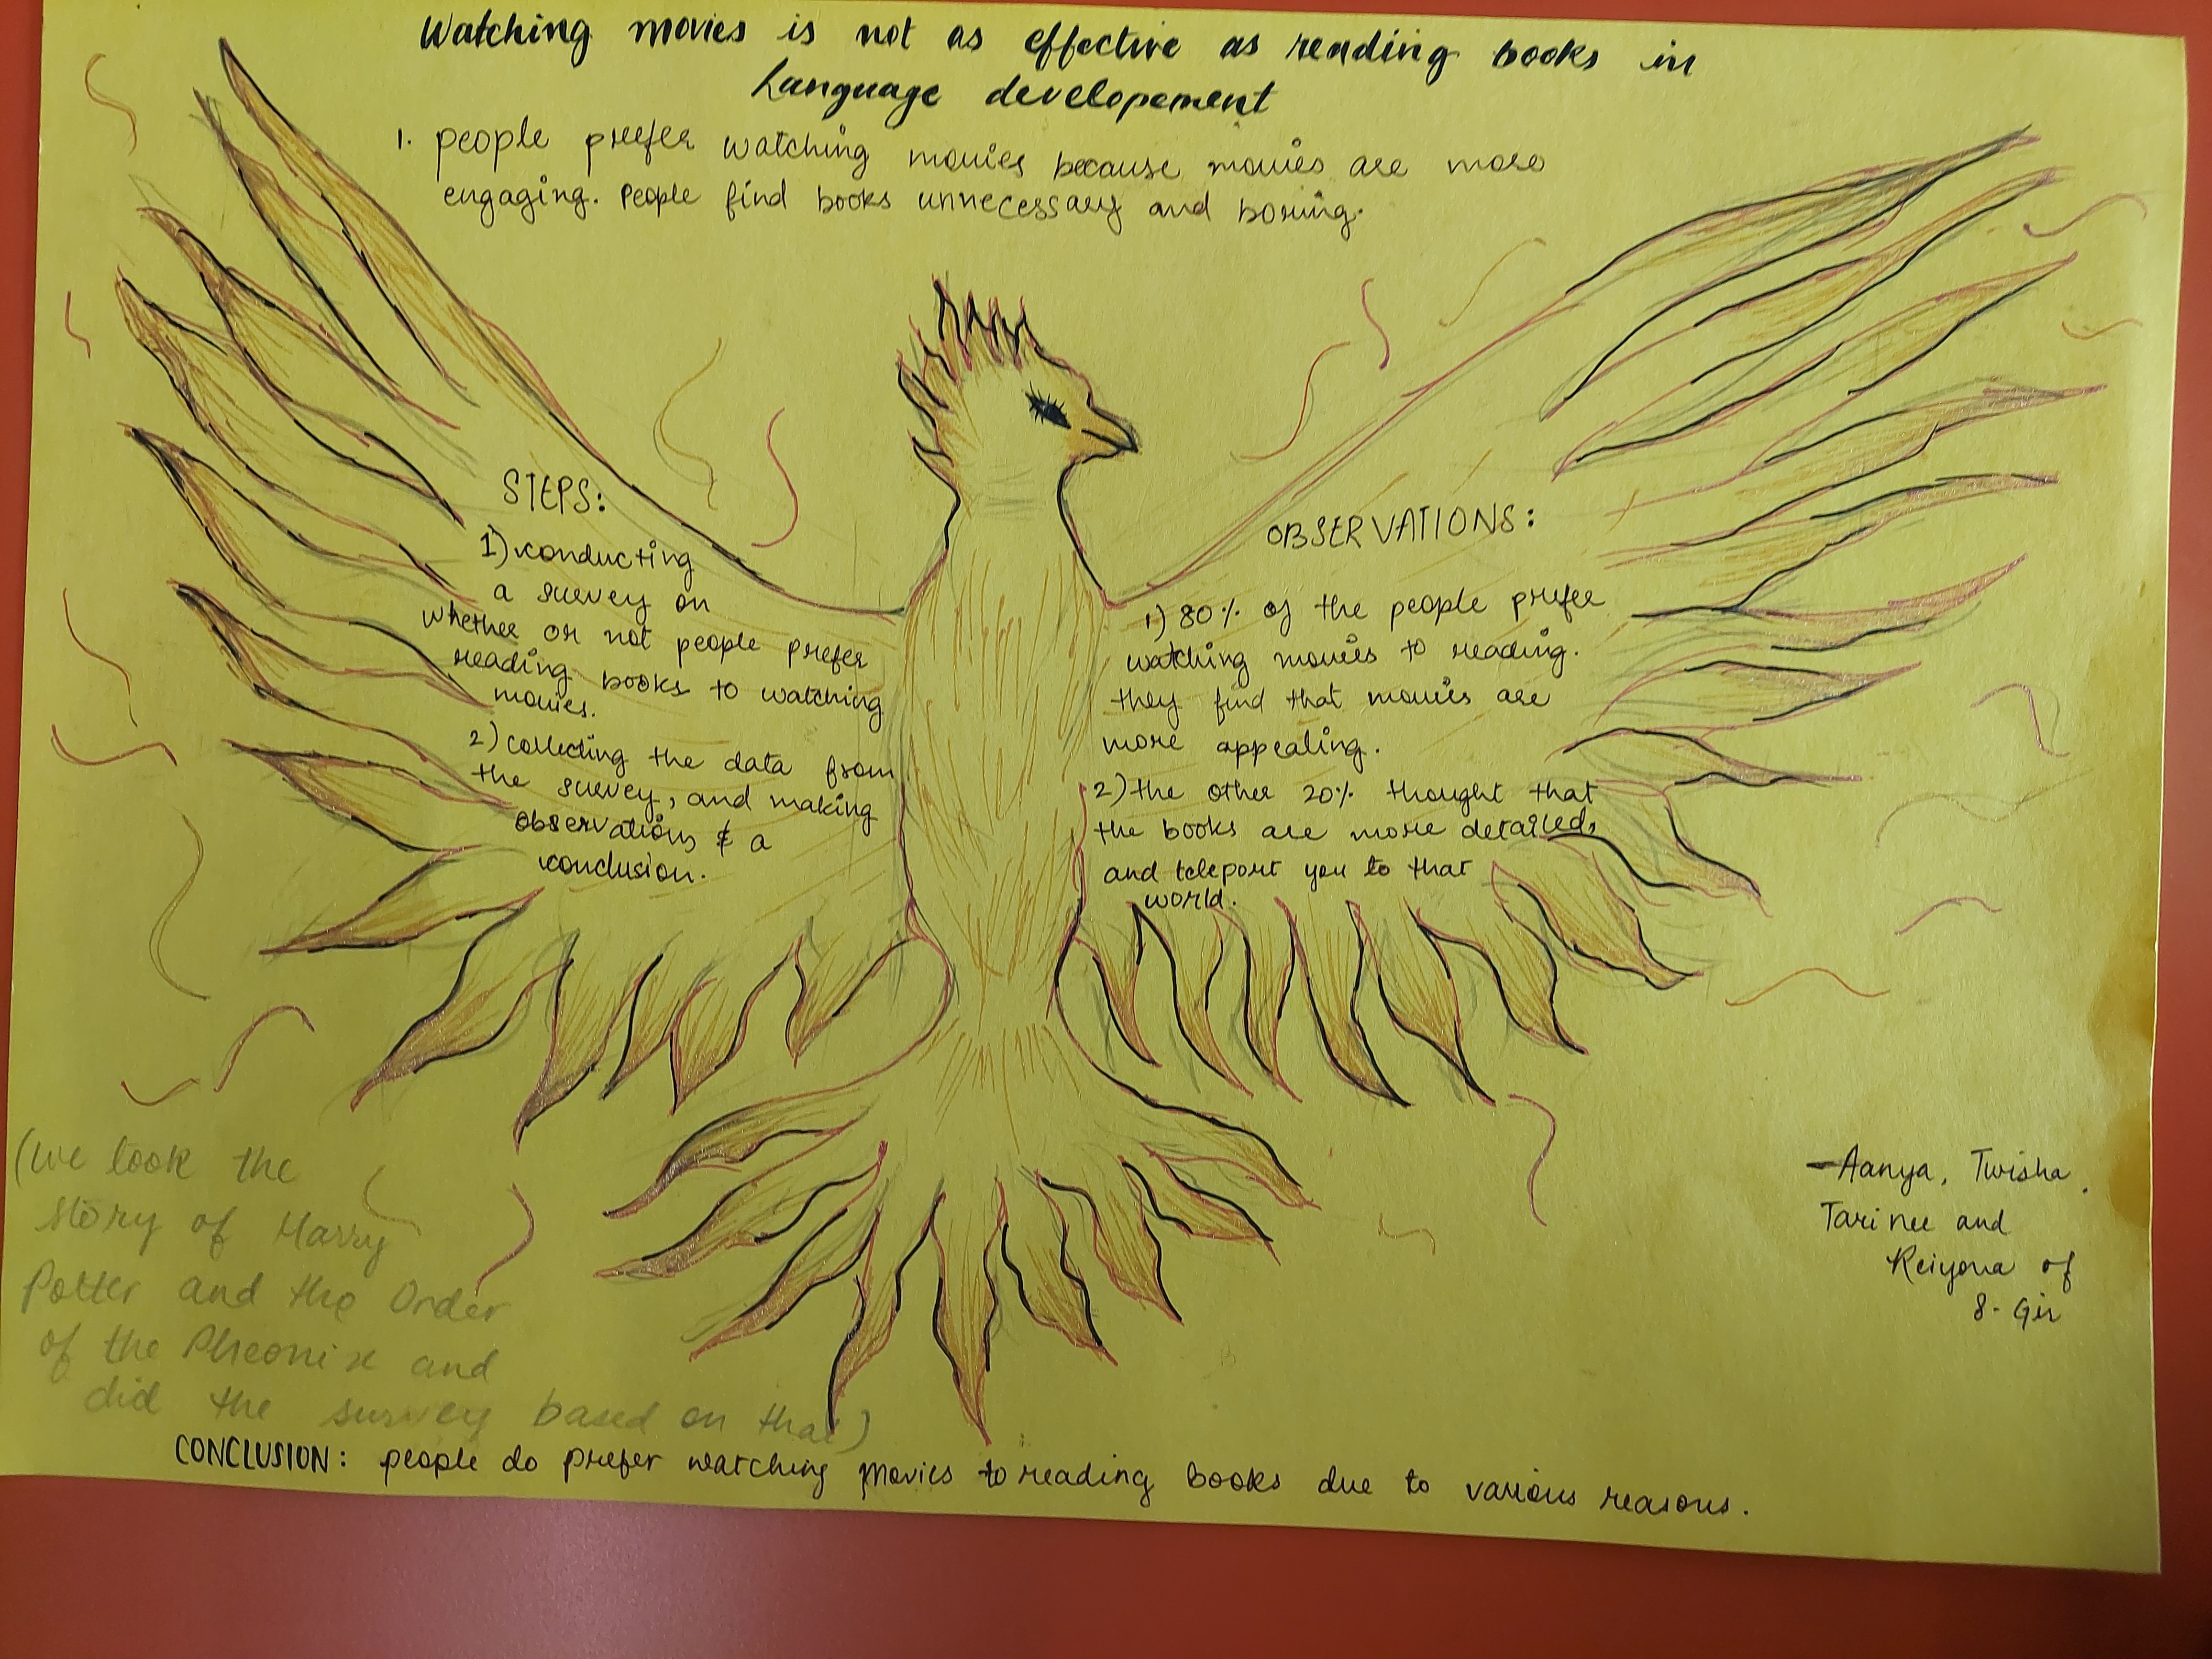 Watching movies is not as effective as reading books in
Language developement
1. people prefer watching movies because movies are more
engaging. People find books unnecessary and boring.
STEPS:
1) conducting
a survey on
whether or not people prefer
reading books to watching
movies.
2) collecting the data from
the survey, and making
observations & a
conclusion.
OBSERVATIONS:
1) 80% of the people prefer
watching movies to reading.
they find that movies are
more appealing.
2) the other 20% thought that
the books are more detailed,
and teleport you to that
world.
(we took the
story of Harry
Potter and the Order
of the Pheonix and
did the survey based on that)
- Aanya, Twisha,
Tarinee and
Reiyona of
8-Gir
CONCLUSION: people do prefer watching movies to reading books due to various reasons.